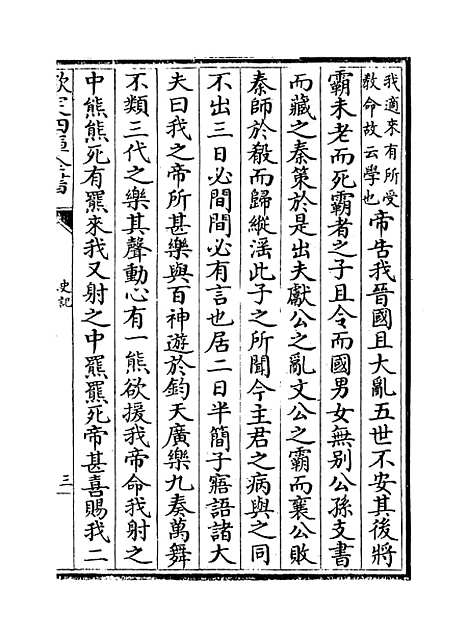 我適來有所受
教命故云學也
帝告我晉國且大亂五世不安其後將
霸未老而死霸者之子且令而國男女無别公孫支書
而藏之秦策於是出夫獻公之亂文公之霸而襄公敗
秦師於殽而歸縱滛此子之所聞今主君之病與之同
不出三日必間間必有言也居二日半簡子寤語諸大
夫曰我之帝所甚樂與百神遊於鈞天廣樂九奏萬舞
不類三代之樂其聲動心有一熊欲援我帝命我射之
中熊熊死有羆來我又射之中羆羆死帝甚喜賜我二
欽定四庫全書
史記
三